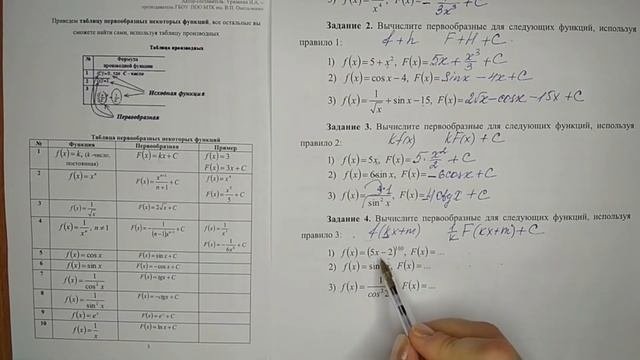 преподаватель ГБОУ ПОО МТК им. В.П. Омельченко
Приведем таблицу первообразных некоторых функций, все остальные вы
сможете найти сами, используя таблицу производных
Таблица производных
№ Формула производной функции
1 C'=0, где C - число
2
3
Исходная функция
Первообразная
Таблица первообразных некоторых функций
№ Функция Первообразная Пример
1 f(x)=k, (k -число, постоянная) F(x)=kx+C f(x)=3 F(x)=3x+C
2 f(x)=x^n F(x)=x^{n+1}/(n+1)+C f(x)=x^4 F(x)=x^5/5+C
3 f(x)=1/√x F(x)=2√x+C
4 f(x)=1/x^n, n≠1 F(x)=-1/((n-1)x^{n-1})+C
5 f(x)=cos x F(x)=sin x+C
6 f(x)=sin x F(x)=-cos x+C
7 f(x)=1/cos²x F(x)=tgx+C
8 f(x)=1/sin²x F(x)=-ctgx+C
9 f(x)=e^x F(x)=e^x+C
10 f(x)=1/x F(x)=ln x+C
Задание 2. Вычислите первообразные для следующих функций, используя
правило 1: f+h F+H+C
1) f(x)=5+x², F(x)=5x+x³/3+C
2) f(x)=cos x-4, F(x)=sinx-4x+C
3) f(x)=1/√x+sin x-15, F(x)=2√x-cosx-15x+C
Задание 3. Вычислите первообразные для следующих функций, используя
правило 2: kf(x) kF(x)+C
1) f(x)=5x, F(x)=5·x²/2+C
2) f(x)=6sin x, F(x)=-6cosx+C
3) f(x)=4·1/sin²x, F(x)=-4ctgx+C
Задание 4. Вычислите первообразные для следующих функций, используя
правило 3: f(kx+m) 1/k F(kx+m)+C
1) f(x)=(5x-2)^{100}, F(x)=...
2) f(x)=sin F(x)=...
3) f(x)=1/cos²2 F(x)=...